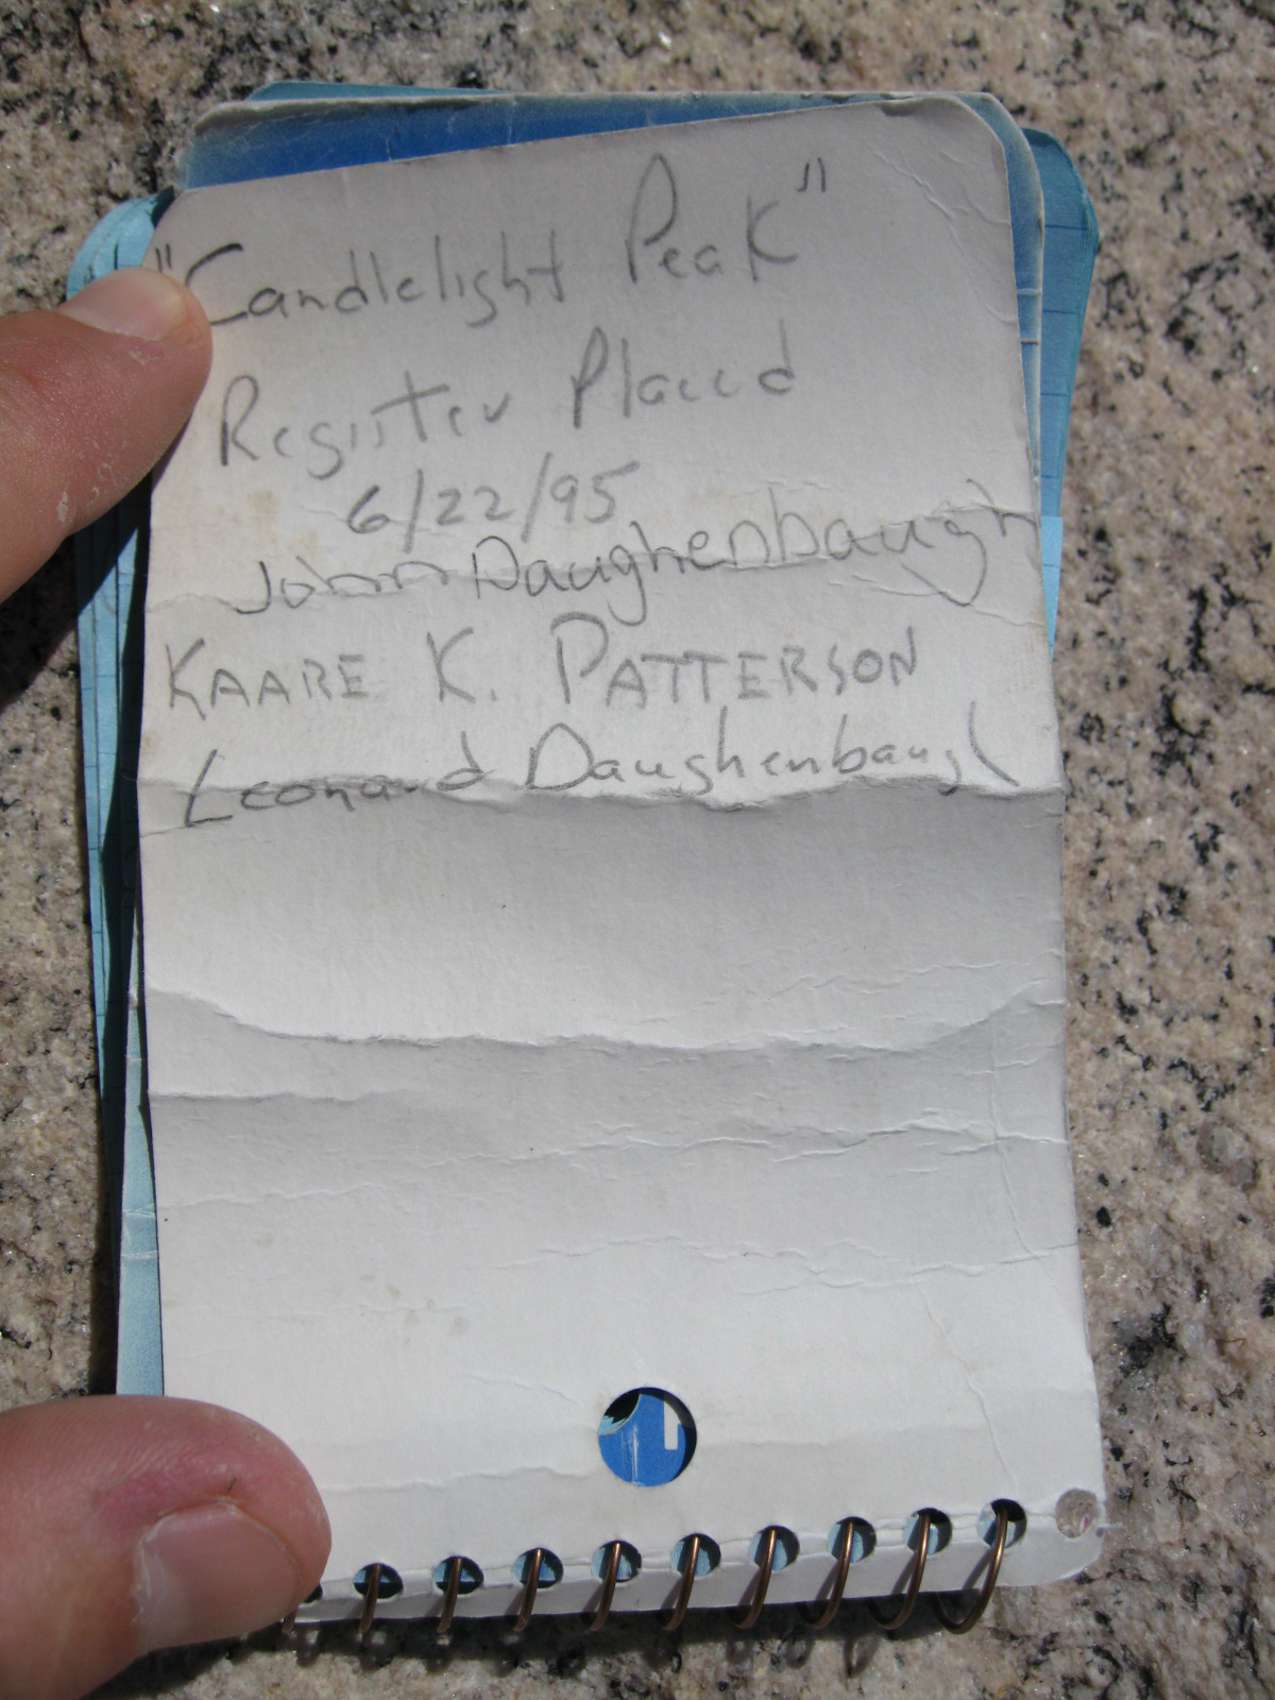 "Candlelight Peak"
Register Placed
6/22/95
John Daughenbaugh
KAARE K. PATTERSON
Leonard Daughenbaugh